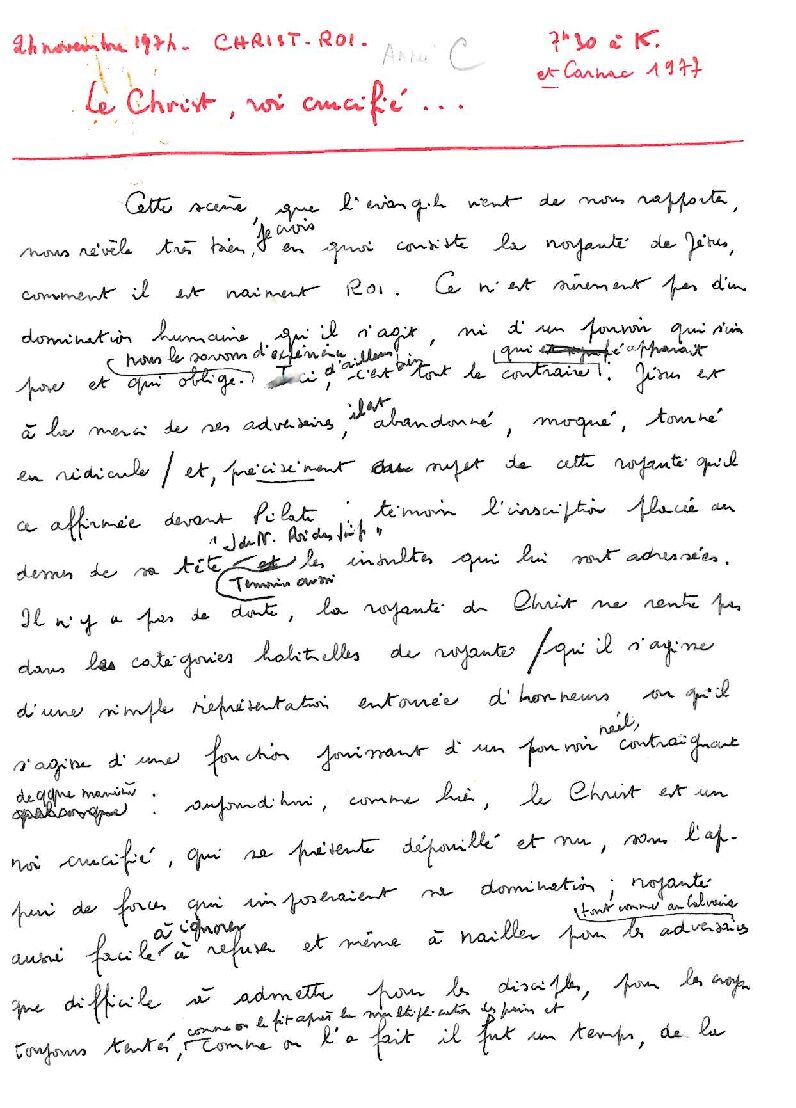 24 novembre 1974. CHRIST-ROI. Année C 7h30 à K.
et Carnac 1977
Le Christ, roi crucifié...
Cette scène, que l'évangile vient de nous rapporter,
nous révèle très bien, je crois en quoi consiste la royauté de Jésus,
comment il est vraiment ROI. Ce n'est sûrement pas d'une
domination humaine qu'il s'agit, ni d'un pouvoir qui s'im
nous le savons d'expérience d'ailleurs bien qui apparaît
pose et qui oblige. Ici, c'est tout le contraire! Jésus est
à la merci de ses adversaires, il est abandonné, moqué, tourné
en ridicule / et, précisément au sujet de cette royauté qu'il
a affirmée devant Pilate : témoin l'inscription placée au
"J. de N. Roi des juifs"
dessus de sa tête et les insultes qui lui sont adressées.
Témoins aussi
Il n'y a pas de doute, la royauté du Christ ne rentre pas
dans les catégories habituelles de royautés / qu'il s'agisse
d'une simple représentation entourée d'honneurs ou qu'il
s'agisse d'une fonction jouissant d'un pouvoir réel, contraignant
de qque manière : aujourd'hui, comme hier, le Christ est un
roi crucifié, qui se présente dépouillé et nu, sans l'ap-
pui de forces qui imposeraient sa domination ; royauté
tout comme au Calvaire
aussi facile à ignorer à refuser et même à railler pour les adversaires
que difficile à admettre pour les disciples, pour les croyants
comme on le fit après la multiplication des pains et
toujours tentés, comme on l'a fait il fut un temps, de la